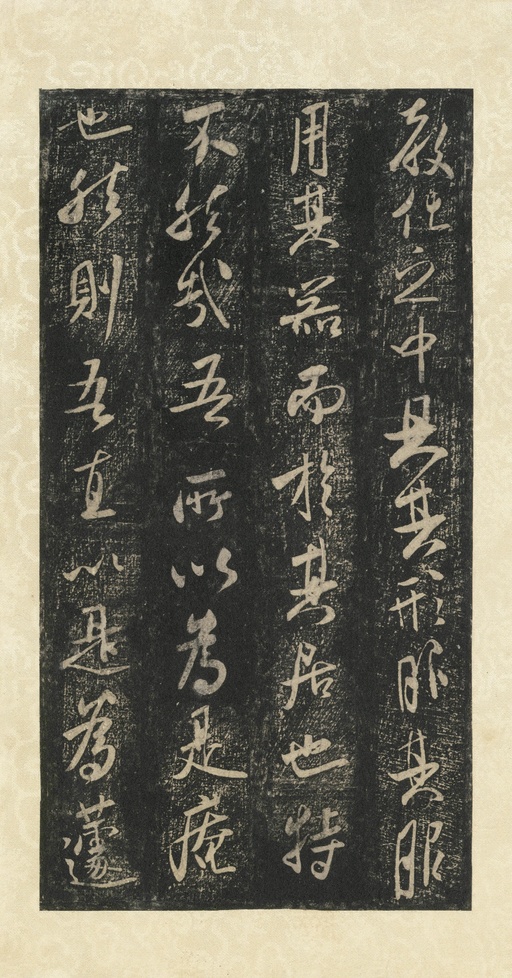 教化之中且其形服其服
用其器而於其居也特
不然哉吾所以為是庵
也然則吾直以是為蘧